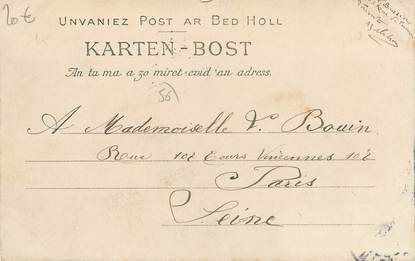 20 €
UNVANIEZ POST AR BED HOLL
KARTEN-BOST
An tu ma a zo miret evid an adress.
56
A Mademoiselle V. Bouin
Rue 102 Cours Vincennes 102
Paris
Seine